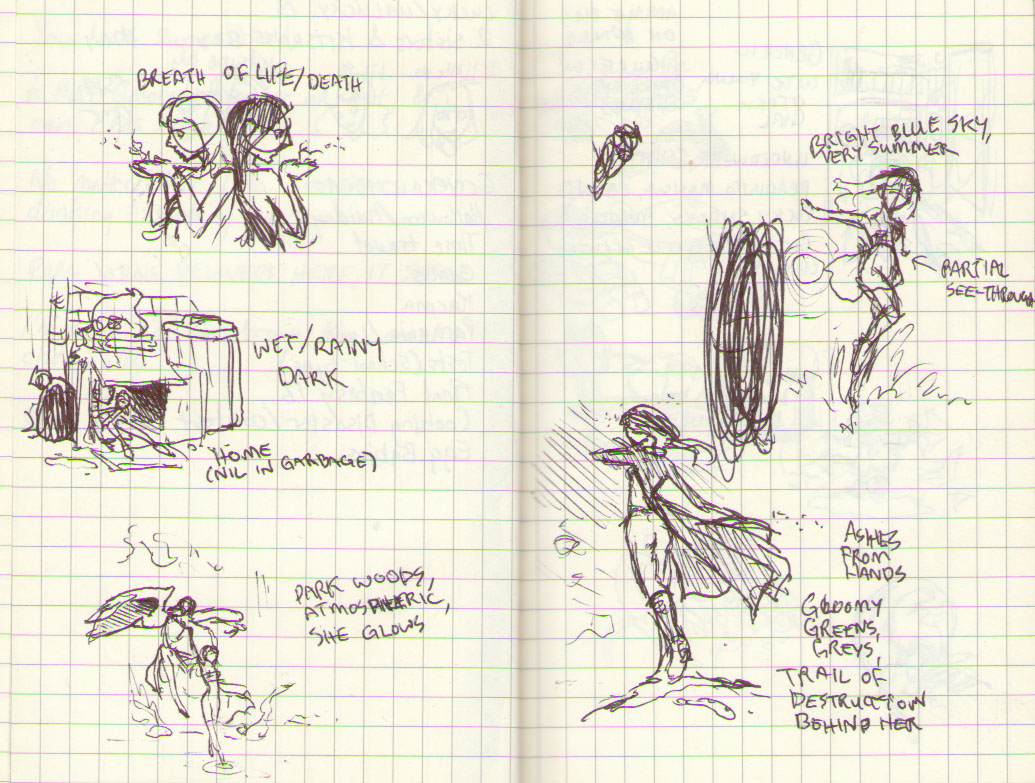 BREATH OF LIFE/DEATH
WET/RAINY
DARK
HOME
(NIL IN GARBAGE)
DARK WOODS,
ATMOSPHERIC,
SHE GLOWS
BRIGHT BLUE SKY,
VERY SUMMER
PARTIAL
SEE-THROUGH
ASHES
FROM
HANDS
GLOOMY
GREENS,
GREYS,
TRAIL OF
DESTRUCTION
BEHIND HER